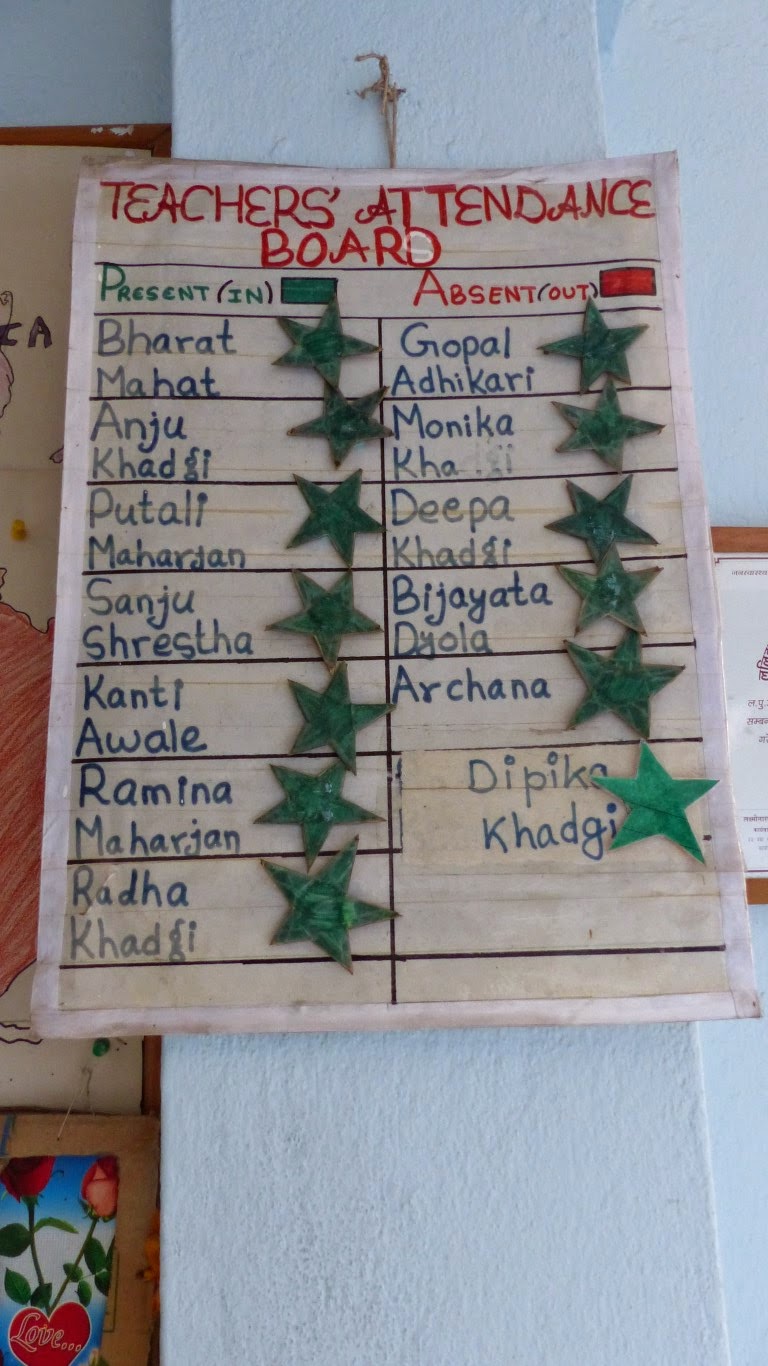 TEACHERS' ATTENDANCE
BOARD
PRESENT (IN)
ABSENT (OUT)
Bharat
Mahat
Anju
Khadgi
Putali
Maharjan
Sanju
Shrestha
Kanti
Awale
Ramina
Maharjan
Radha
Khadgi
Gopal
Adhikari
Monika
Deepa
Khadgi
Bijayata
Dyola
Archana
Dipika
Khadgi
Love...